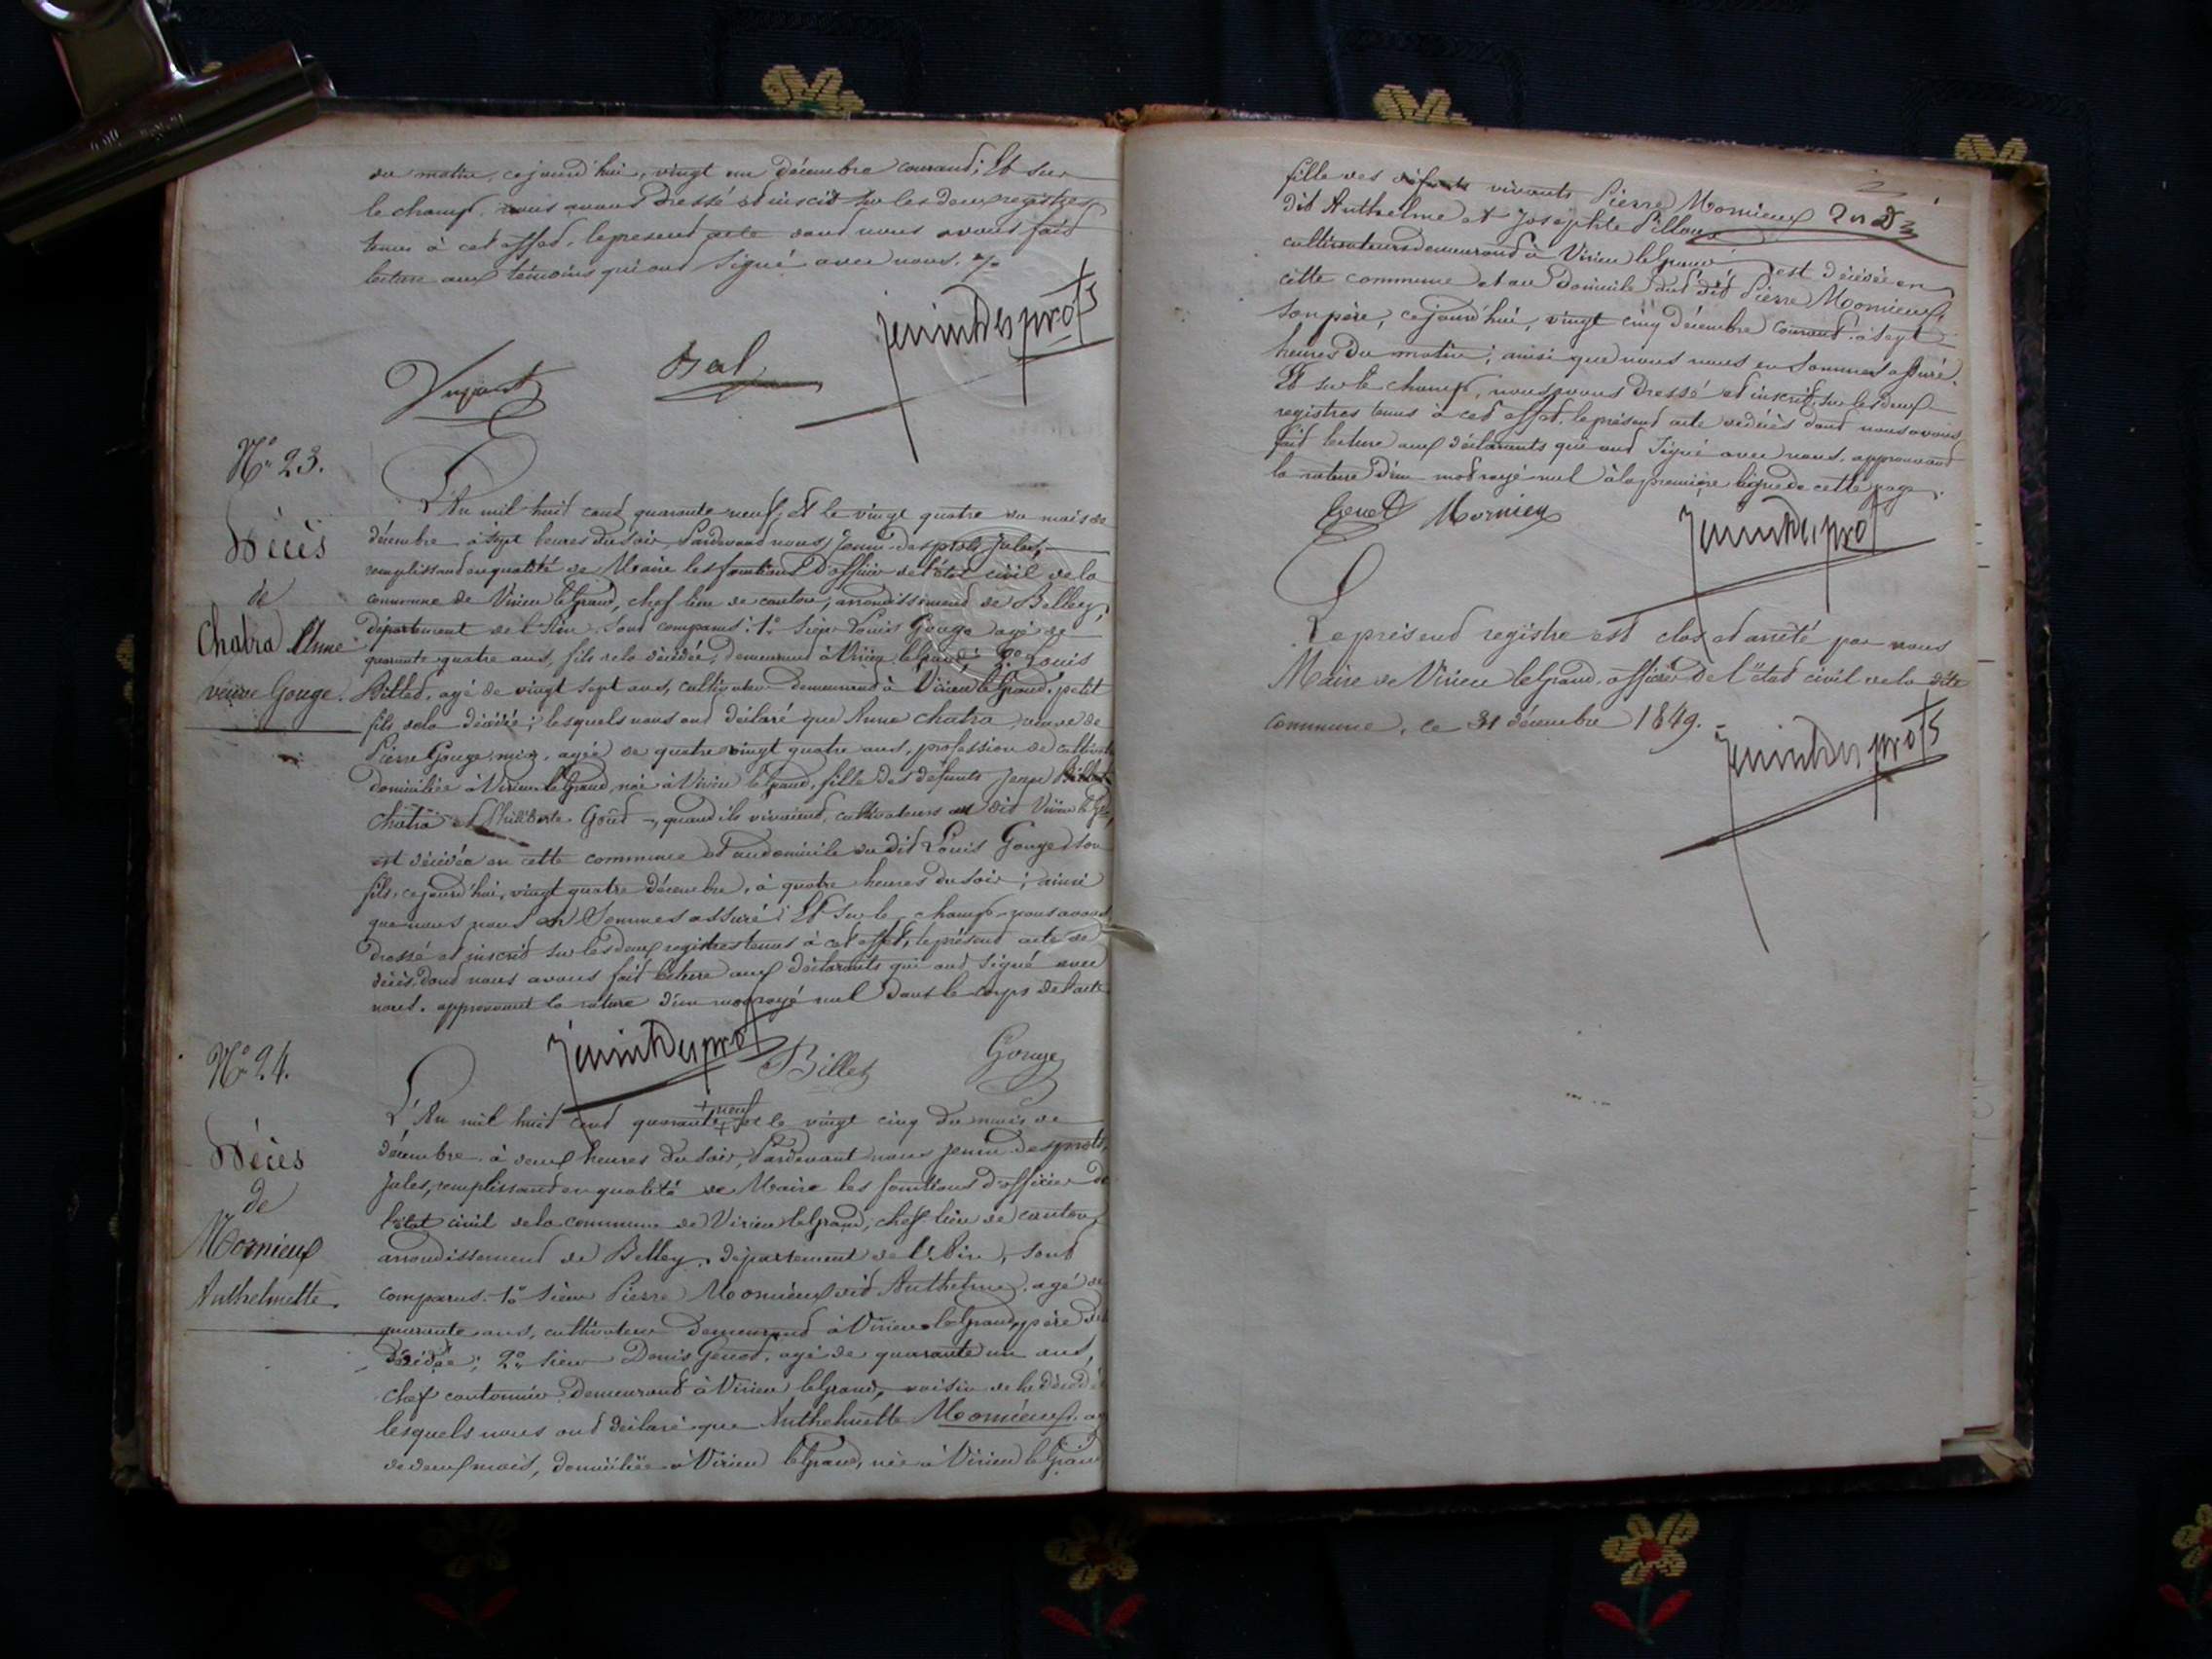 du matin, cejourd'hui, vingt un décembre courant; Et sur
le champ, nous avons dressé et inscrit sur les deux registres
tenus à cet effet, le present acte dont nous avons fait
lecture aux témoins qui ont signé avec nous.
Jenin Desprots
N° 23.
Décès
de
Chatra Anne
veuve Gouge.
L'An mil huit cent quarante neuf, et le vingt quatre du mois de
décembre à sept heures du soir, Pardevant nous Jenin-desprots Jules,
remplissant en qualité de Maire les fonctions d'officier de l'état civil de la
commune de Virieu le Grand, chef lieu de canton, arrondissement de Belley,
département de l'Ain, sont comparus: 1° Sieur Louis Gouge agé de
quarante quatre ans, fils de la décédée, demeurant à Virieu le Grand; 2° Louis
Billet, agé de vingt sept ans, cultivateur demeurant à Virieu le Grand, petit
fils de la décédée; lesquels nous ont déclaré que Anne Chatra, veuve de
Pierre Gouge, agée de quatre vingt quatre ans, profession de
domiciliée à Virieu le Grand, née à Virieu le Grand, fille des défunts
Chatra et quand ils vivaient, cultivateurs au dit Virieu le
est décédée en cette commune et au domicile du dit Louis Gouge son
fils, cejourd'hui, vingt quatre décembre, à quatre heures du soir; ainsi
que nous nous en sommes assuré; Et sur le champ nous avons
dressé et inscrit sur les deux registres tenus à cet effet, le présent acte de
décès, dont nous avons fait lecture aux déclarants qui ont signé avec
nous. approuvant la rature d'un mot rayé nul dans le corps de l'acte
Jenin Desprots Billet Gouge
N° 24.
Décès
de
Mornieux
Anthelmette.
L'An mil huit cent quarante neuf et le vingt cinq du mois de
décembre à deux heures du soir, Pardevant nous Jenin-desprots,
Jules, remplissant en qualité de Maire les fonctions d'officier de
l'état civil de la commune de Virieu le Grand, chef lieu de canton,
arrondissement de Belley, département de l'Ain, sont
comparus: 1° Sieur Pierre Mornieux dit Anthelme, agé de
quarante ans, cultivateur demeurant à Virieu le Grand, père de
décédée; 2° Sieur Denis Genod, agé de quarante un ans,
chef cantonnier demeurant à Virieu le Grand, voisin de
lesquels nous ont déclaré que Anthelmette Mornieux,
de deux mois, domiciliée à Virieu le Grand, née à Virieu le Grand
fille des défunts vivants Pierre Mornieux
dit Anthelme et Josephte Pilloux
cultivateurs demeurant à Virieu le Grand est décédée en
cette commune et au domicile du dit Pierre Mornieux,
son père, cejourd'hui, vingt cinq décembre courant à sept
heures du matin, ainsi que nous nous en sommes assuré.
Et sur le champ, nous avons dressé et inscrit sur les deux
registres tenus à cet effet, le présent acte de décès dont nous avons
fait lecture aux déclarants qui ont signé avec nous, approuvant
la rature d'un mot rayé nul à la première ligne de cette page.
Genod Mornieux Jenin Desprots
Le présent registre est clos et arrêté par nous
Maire de Virieu le Grand, officier de l'état civil de la dite
commune, ce 31 décembre 1849.
Jenin Desprots